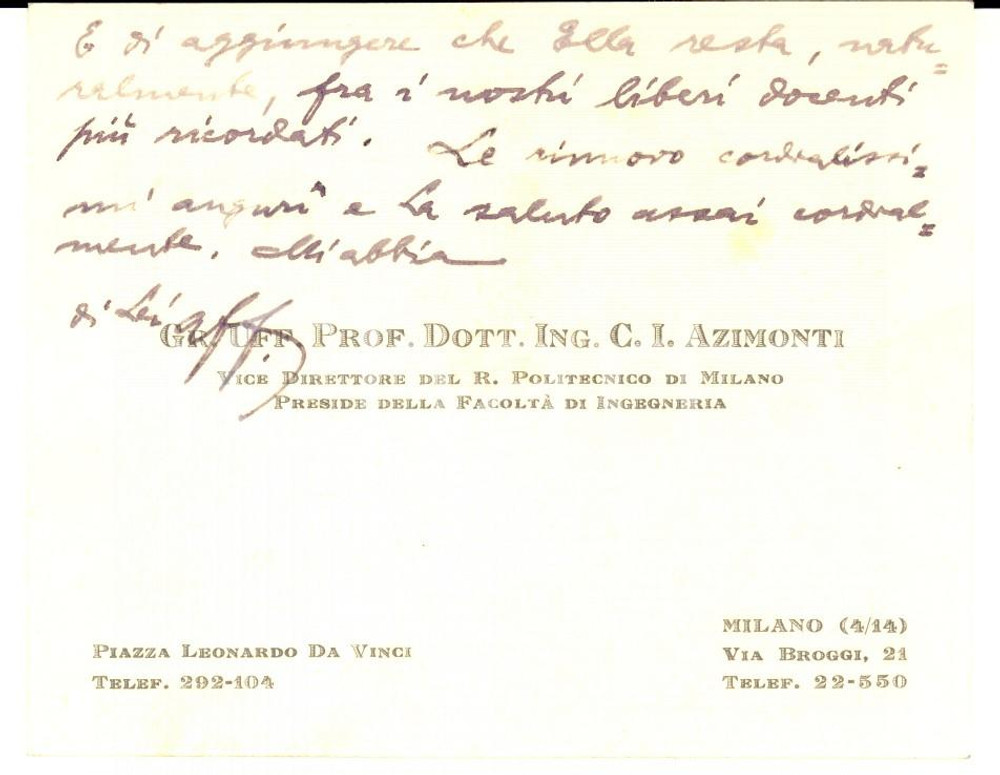 E di aggiungere che Ella resta, natu=
ralmente, fra i nostri liberi docenti
più ricordati. Le rinnovo cordialissi=
mi auguri e La saluto assai cordial=
mente. Mi abbia
di Lei aff.
GR. UFF. PROF. DOTT. ING. C. I. AZIMONTI
VICE DIRETTORE DEL R. POLITECNICO DI MILANO
PRESIDE DELLA FACOLTÀ DI INGEGNERIA
MILANO (4/14)
PIAZZA LEONARDO DA VINCI
VIA BROGGI, 21
TELEF. 292-104
TELEF. 22-550